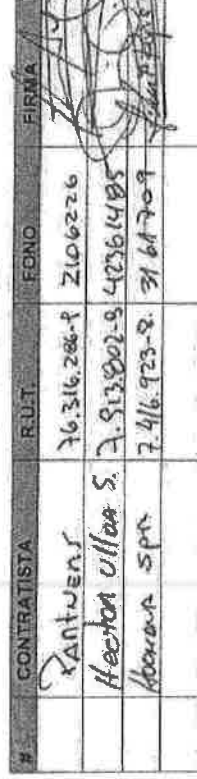 # CONTRATISTA R.U.T. FONO FIRMA
76.316.286-9 2106226
Hector Ulloa S. 7.913.802-9 423614185
spa 7.416.923-8. 31 61 709